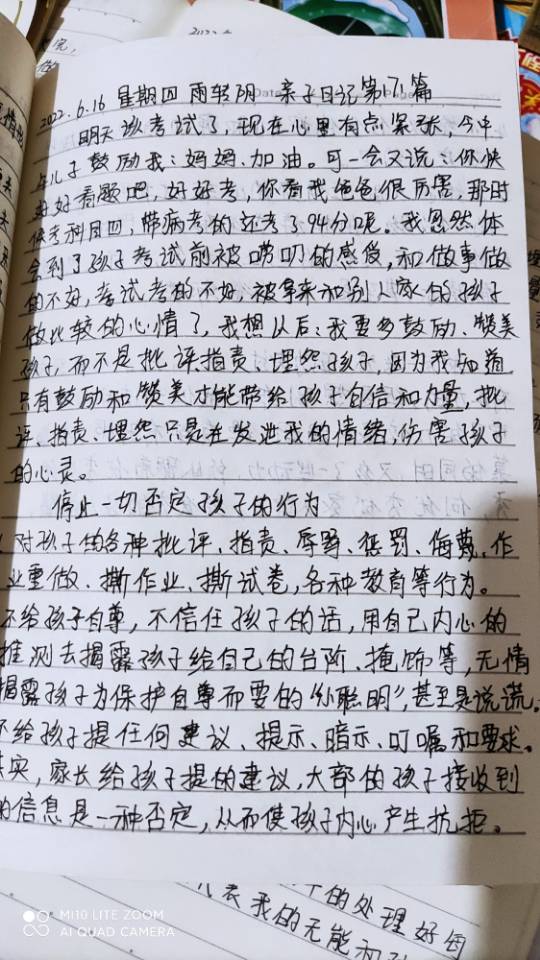 2022.6.16 星期四 雨转阴 亲子日记第71篇
明天该考试了,现在心里有点紧张,今中
午儿子鼓励我:妈妈,加油。可一会又说:你快
好好看题吧,好好考,你看我爸爸很厉害,那时
候考科目四,带病考的还考了94分呢。我忽然体
会到了孩子考试前被唠叨的感受,和做事做
的不好,考试考的不好,被拿来和别人家的孩子
做比较的心情了,我想以后:我要多鼓励、赞美
孩子,而不是批评指责、埋怨孩子,因为我知道
只有鼓励和赞美才能带给孩子自信和力量,批
评、指责、埋怨只是在发泄我的情绪,伤害孩子
的心灵。
停止一切否定孩子的行为
对孩子的各种批评、指责、辱骂、惩罚、侮蔑、作
业重做、撕作业、撕试卷,各种教育等行为。
不给孩子自尊,不信任孩子的话,用自己内心的
推测去揭露孩子给自己的台阶、掩饰等,无情
揭露孩子为保护自尊而耍的“小聪明”,甚至是说谎。
不给孩子提任何建议、提示、暗示、叮嘱和要求。
其实,家长给孩子提的建议,大部的孩子接收到
的信息是一种否定,从而使孩子内心产生抗拒。
的处理好每
代表我的无能和
MI 10 LITE ZOOM
AI QUAD CAMERA